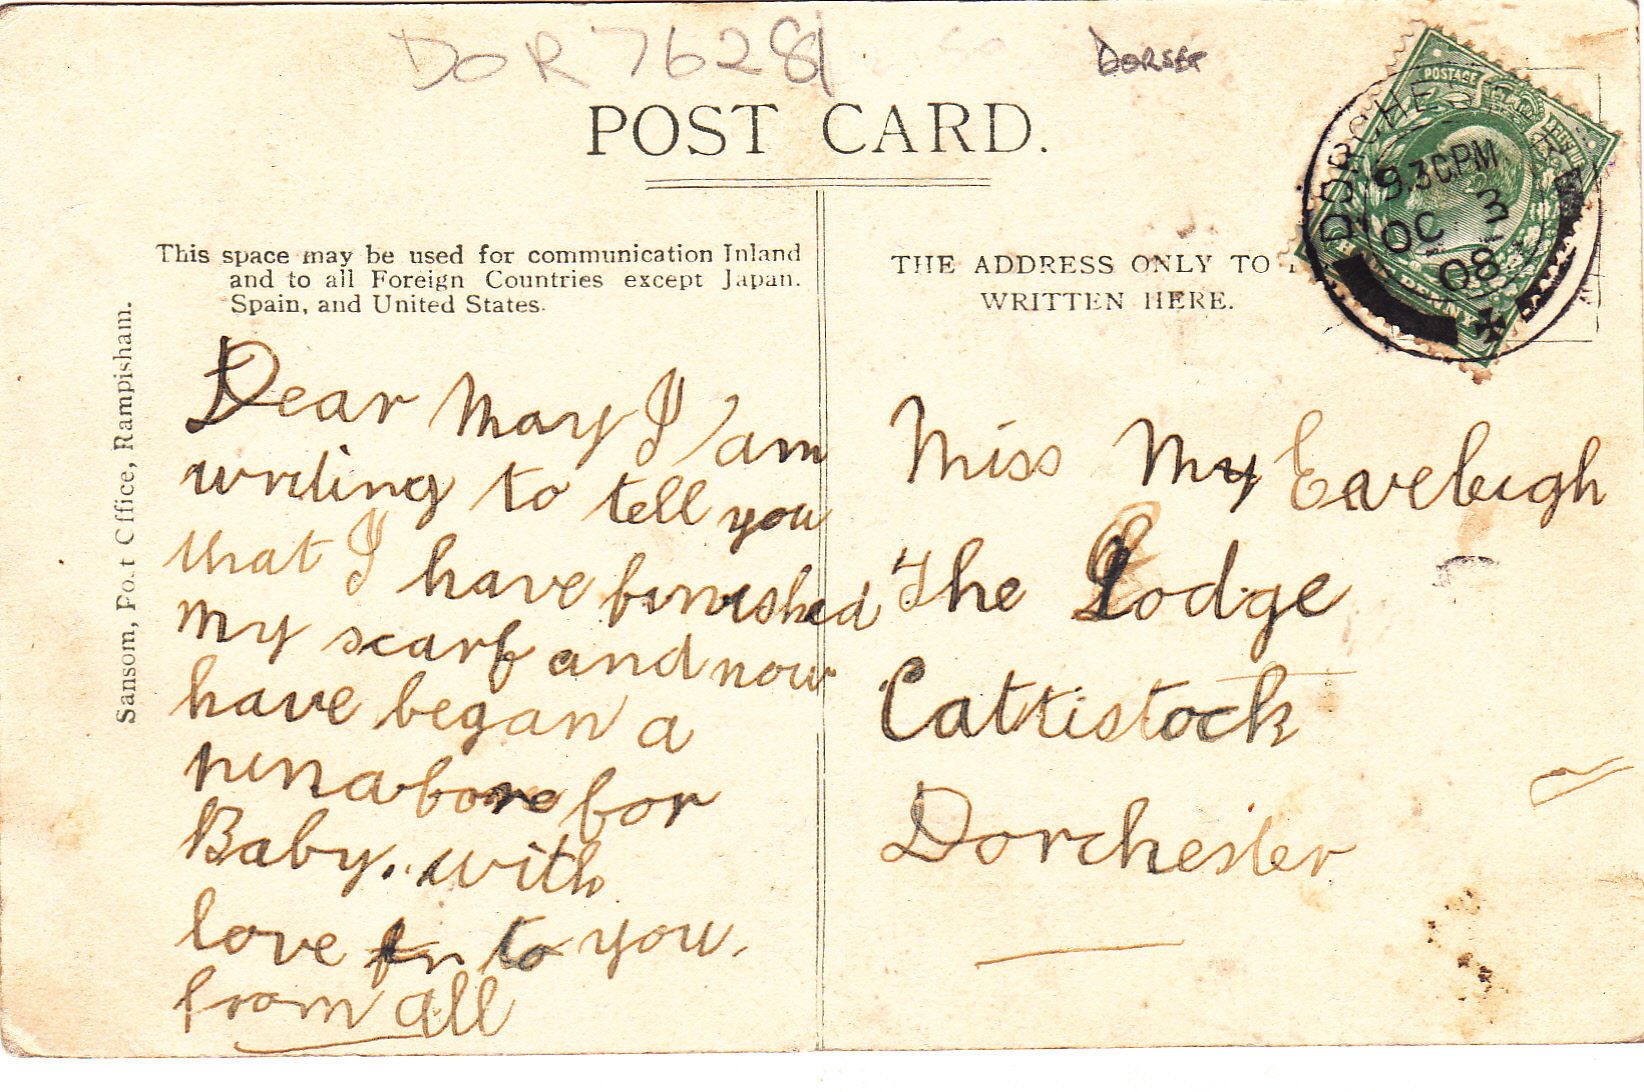 DOR 76281
DORSET
POST CARD.
This space may be used for communication Inland
and to all Foreign Countries except Japan.
Spain, and United States.
THE ADDRESS ONLY TO
WRITTEN HERE.
POSTAGE
DORCHESTER
9.30PM
OC 3
08
PENNY
Sansom, Post Office, Rampisham.
Dear May I am
writing to tell you
that I have finished
My scarf and now
have began a
pinabore for
Baby. with
love fr to you.
from all
Miss My Eveleigh
The Lodge
Cattistock
Dorchester